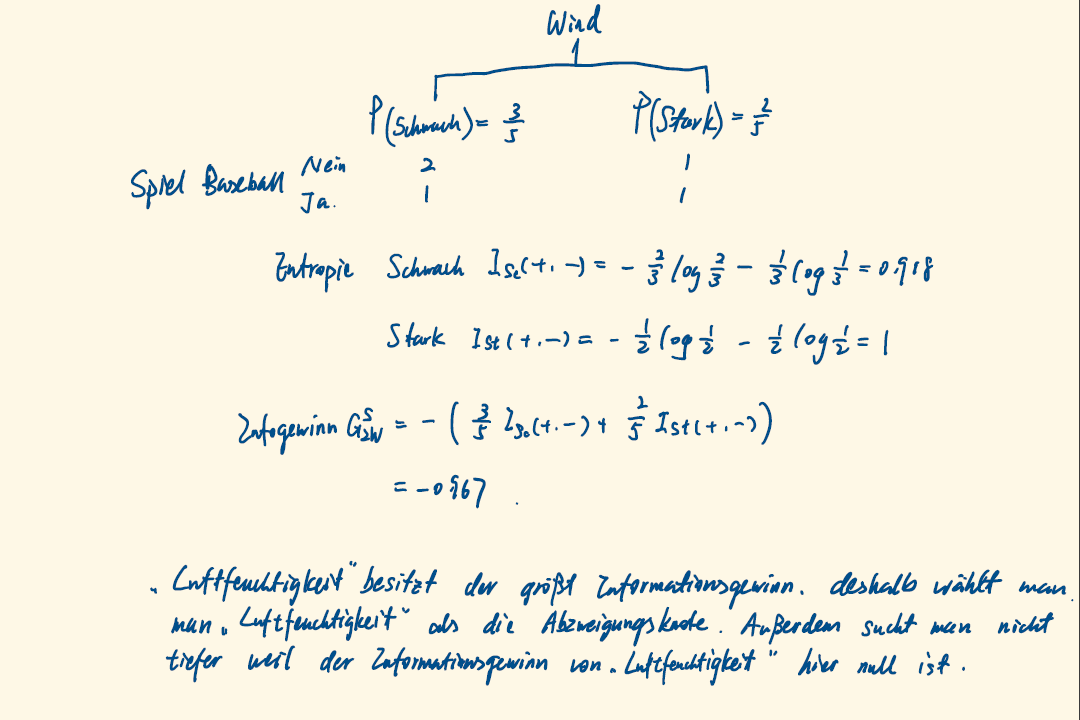 Wind
P(Schwach) = 3/5 P(Stark) = 2/5
Spiel Baseball Nein 2 1
Ja. 1 1
Entropie Schwach I_Sc(+,-) = - 2/3 log 2/3 - 1/3 log 1/3 = 0,918
Stark I_St(+,-) = - 1/2 log 1/2 - 1/2 log 1/2 = 1
Infogewinn = - ( 3/5 I_Sc(+,-) + 2/5 I_St(+,-) )
= -0,967
„Luftfeuchtigkeit" besitzt der größt Informationsgewinn. deshalb wählt man
man „Luftfeuchtigkeit" als die Abzweigungsknote. Außerdem sucht man nicht
tiefer weil der Informationsgewinn von „Luftfeuchtigkeit" hier null ist.